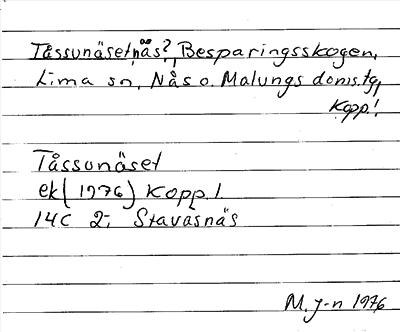 Tåssunäsetnäs?, Besparingsskogen,
Lima sn, Nås o. Malungs doms.tg,
Kopp.l
Tåssunäset
ek (1976) Kopp.l.
14C 2; Stavasnäs
M. J-n 1976